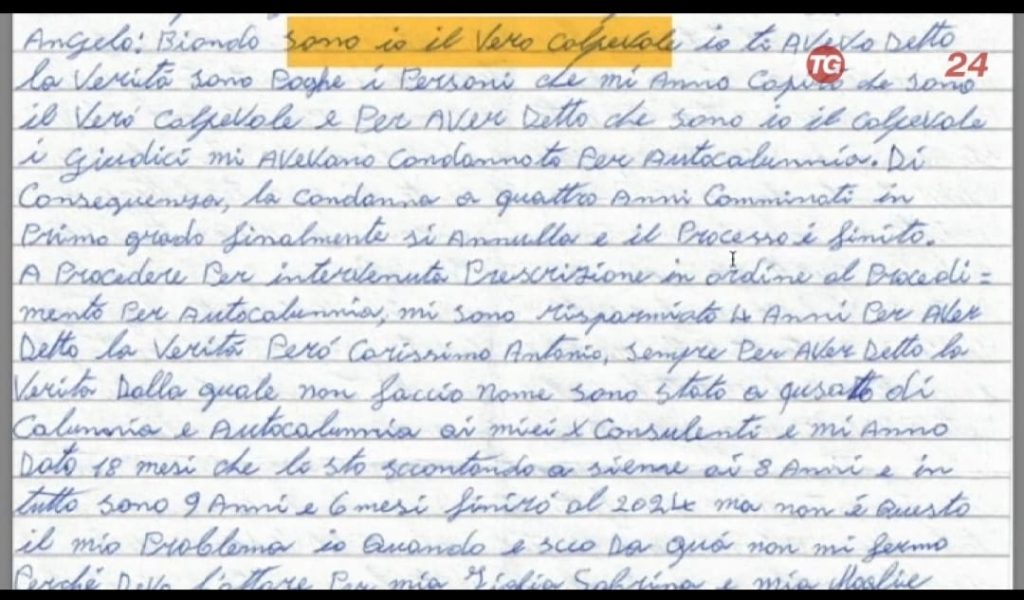 Angelo: Biondo sono io il Vero Colpevole io ti AVeVo Detto
la Verità sono Poghe i Personi che mi Anno Capito che sono
il Veró Colpevole e Per AVer Detto che sono io il Colpevole
i Giudici mi AVeVano Condannato Per Autocalunnia. Di
Conseguensa, la Condanna a quattro Anni Comminati in
Primo grado finalmente si Annulla e il Processo é finito.
A Procedere Per intervenuta Prescrizione in ordine al Procedi=
mento Per Autocalunnia, mi sono risparmiato 4 Anni Per AVer
Detto la Veritá Peró Carissimo Antonio, sempre Per AVer Detto la
Verita Dalla quale non faccio Nome sono stato a qusatto di
Calunnia e Autocalunnia ai miei X Consulenti e mi Anno
Dato 18 mesi che li sto sccontando a sieme ai 8 Anni e in
tutto sono 9 Anni e 6 mesi finiró al 2024 ma non é Questo
il mio Problema io Quando e scco Da quá non mi fermo
Perché Devo l'attare Per mia Figlia Sabrina e mia Moglie
TG 24